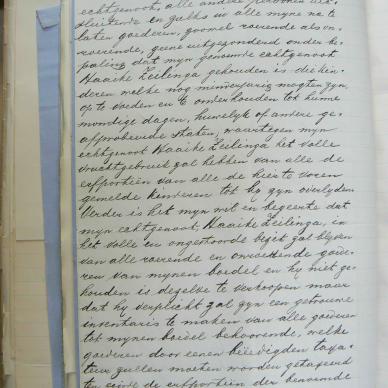 echtgenoot, alle andere personen uit-
sluitende en zulks in alle myne na te
laten goederen, zoowel roerende als on-
roerende, geene uitgezonderd onder be-
paling dat myn genoemde echtgenoot
Haaike Zeilinga gehouden is die kin-
deren welke nog minderjarig mogten zyn,
op te voeden en te onderhouden tot hunne
mondige dagen, huwelyk of andere ge-
approbeerde staten, waartegen myn
echtgenoot Haaike Zeilinga het volle
vruchtgebruik zal hebben van alle de
erfportien van alle de hier te voren
gemelde kinderen tot hy zyn overlyden
Verder is het myn wil en begeerte dat
myn echtgenoot, Haaike Zeilinga, in
het volle en ongestoorde bezit zal blyven
van alle roerende en onroerende goede-
ren van mynen boedel en hy niet ge-
houden is dezelve te verkoopen maar
dat hy verplicht zal zyn een getrouwe
inventaris te maken van alle goederen
tot mynen boedel behoorende, welke
goederen door eenen beëedigden taxa-
teur zullen moeten worden getaxeerd
ten einde de erfportien der benoemde